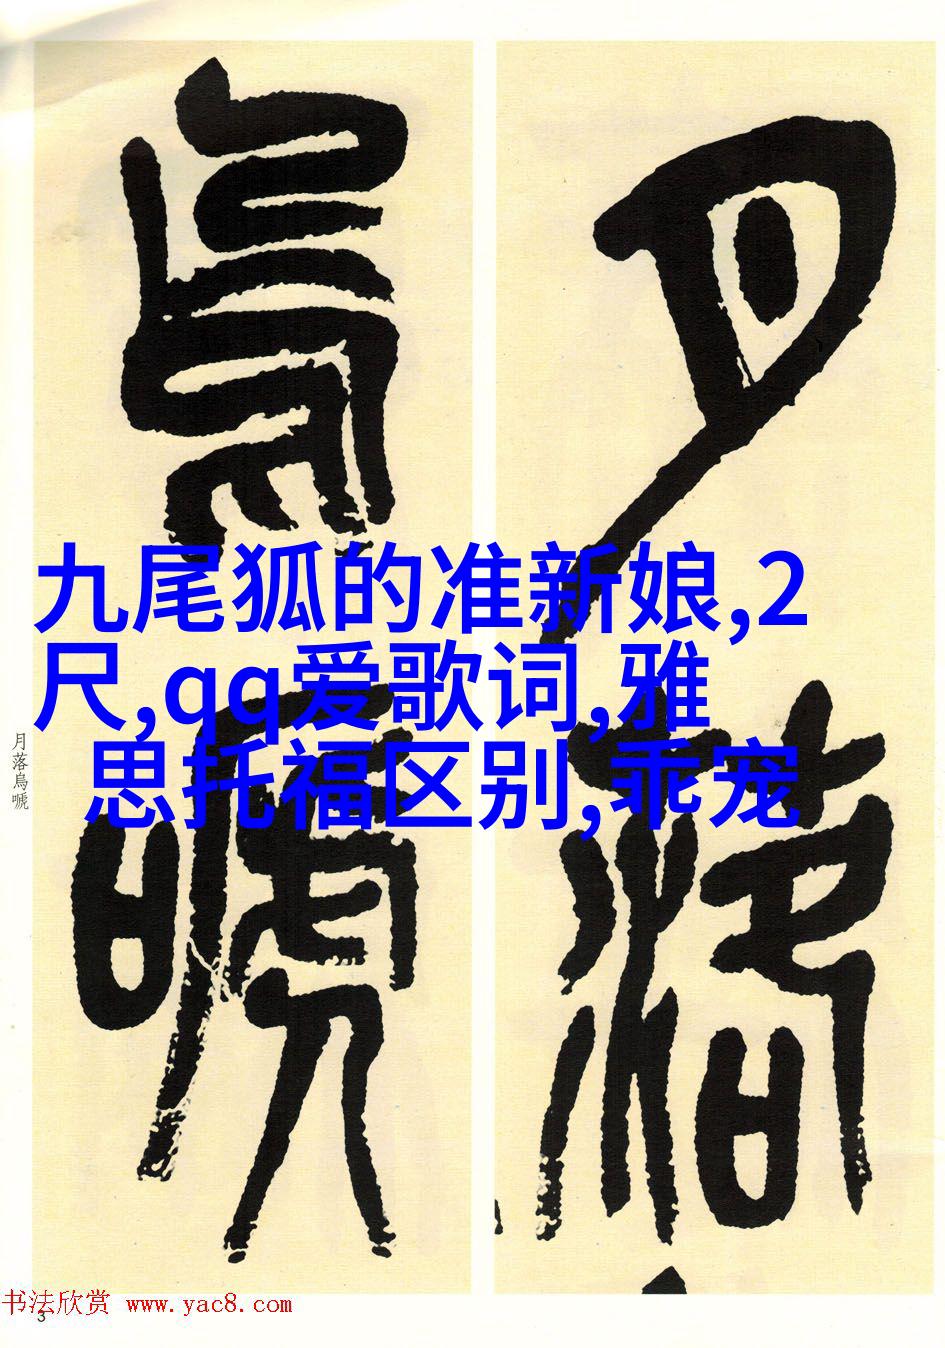 月落
烏嗁
九尾狐的准新娘,2
尺,qq爱歌词,雅
思托福区别,乖宠
月落烏嗁
书法欣赏 www.yac8.com
3